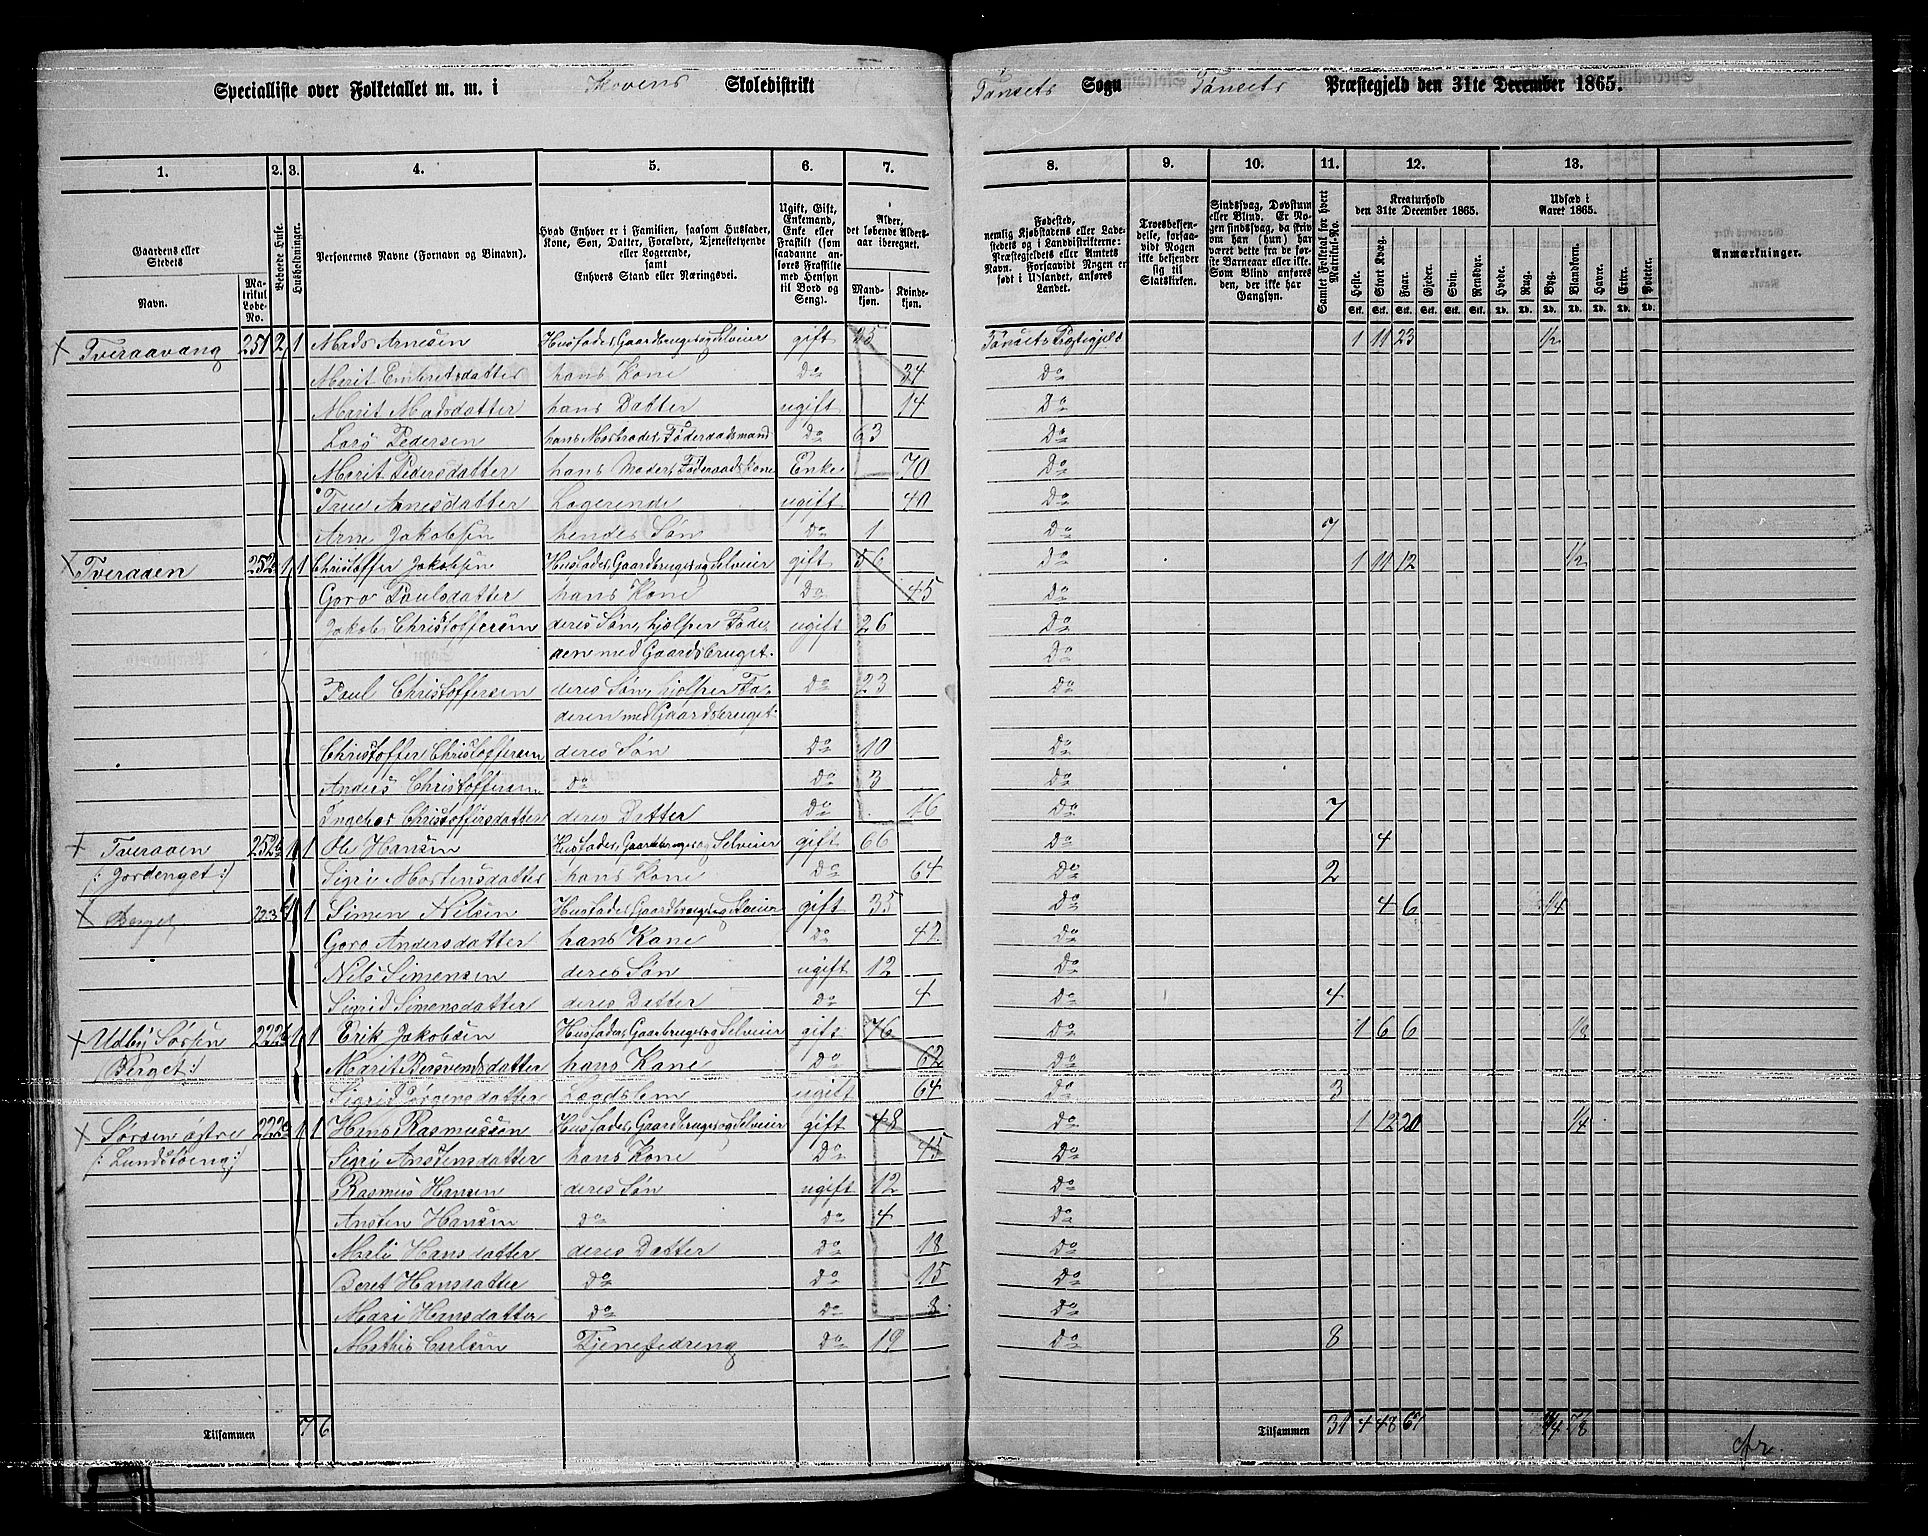 Specialliste over Folketallet m. m. i Movens Skoledistrikt Tønsets Sogn Tønsets Præstegjeld den 31te December 1865.
1. 2. 3. 4. 5. 6. 7. 8. 9. 10. 11. 12. 13.
Gaardens eller Stedets Navn. Matrikul Løbe-No. Beboede Huse. Husholdninger. Personernes Navne (Fornavn og Binavn). Hvad Enhver er i Familien, saasom Husfader, Kone, Søn, Datter, Forældre, Tjenestetyende eller Logerende, samt Enhvers Stand eller Næringsvei. Ugift, Gift, Enkemand, Enke eller Fraskilt (som saadanne anføres Fraskilte med Hensyn til Bord og Seng). Alder, det løbende Aldersaar iberegnet. Mandkjøn. Kvindekjøn.
Fødested, nemlig Kjøbstadens eller Ladestedets og i Landdistrikterne: Præstegjeldets eller Amtets Navn. Forsaavidt Nogen er født i Udlandet, anføres Landet. Troesbekjendelse, forsaavidt Nogen ikke bekjender sig til Statskirken. Sindssvag, Døvstum eller Blind. Er Nogen sindssvag, da skrives om han (hun) har været dette fra de første Barneaar eller ikke. Som Blind anføres den, der ikke har Gangsyn. Samlet Folketal for hvert Matrikul-No. Kreaturhold den 31te December 1865. Heste. Stort Kvæg. Faar. Gjeder. Svin. Rensdyr. Udsæd i Aaret 1865. Hvede. Rug. Byg. Blandkorn. Havre. Erter. Poteter. Anmærkninger.
Tveraavang 251 2 1 Mads Arnesen Husfader, Gaardbruger og Selveier gift 35 Tønsets Prgtegjeld 1 11 23 1/2
Marit Embretsdatter hans Kone Do 34 Do
Marit Madsdatter hans Datter ugift 14 Do
Lars Pedersen hans Morbroder, Føderaadsmand Do 63 Do
Marit Pedersdatter hans Moder, Føderaadskone Enke 70 Do
True Arnesdatter Logerende ugift 40 Do
Arne Jakobsen hendes Søn Do 1 Do 7
Tveraaen 252 1 1 Christoffer Jakobsen Husfader, Gaardbruger og Selveier gift 56 Do 1 11 12 1/2
Goro Paulsdatter hans Kone Do 45 Do
Jakob Christoffersen deres Søn, hjelper Fade- ugift 26 Do
ren med Gaardsbruget. Do
Paul Christoffersen deres Søn, hjelper Fa- Do 23 Do
deren med Gaardsbruget.
Christoffer Christoffersen deres Søn Do 10 Do
Anders Christoffersen Do Do 3 Do
Ingebor Christoffersdatter deres Datter Do 16 Do 7
Tveraaen 252 1 1 Ole Hansen Husfader, Gaardbruger og Selveier gift 66 Do 4
/: Jordenget :/ Sigri Mortensdatter hans Kone Do 64 Do 2
Berget, 223 1 1 Simen Nilsen Husfader, Gaardbruger og Selveier gift 35 Do 4 6 1/4
Goro Andersdatter hans Kone Do 42 Do
Nils Simensen deres Søn ugift 12 Do
Sigrid Simensdatter deres Datter Do 4 Do 4
Udby Sørsen 222 1 1 Erik Jakobsen Husfader, Gaardbruger og Selveier gift 76 Do 1 6 6
/Berget :/ Marit Besvendsdatter hans Kone Do 62 Do
Sigrid Jørgensdatter Lægdslem ugift 64 Do 3
Sørsen østre 222 1 1 Hans Rasmussen Husfader, Gaardbruger og Selveier gift 48 Do 1 12 20 1/4
/: Lundstøeng :/ Sigri Anstensdatter hans Kone Do 45 Do
Rasmus Hansen deres Søn ugift 12 Do
Ansten Hansen Do Do 4 Do
Mali Hansdatter deres Datter Do 18 Do
Beret Hansdatter Do Do 15 Do
Mari Hansdatter Do Do 8 Do
Mathis Carlsen Tjenestedreng Do 19 Do 8
Tilsammen 7 6 Tilsammen 31 4 48 67